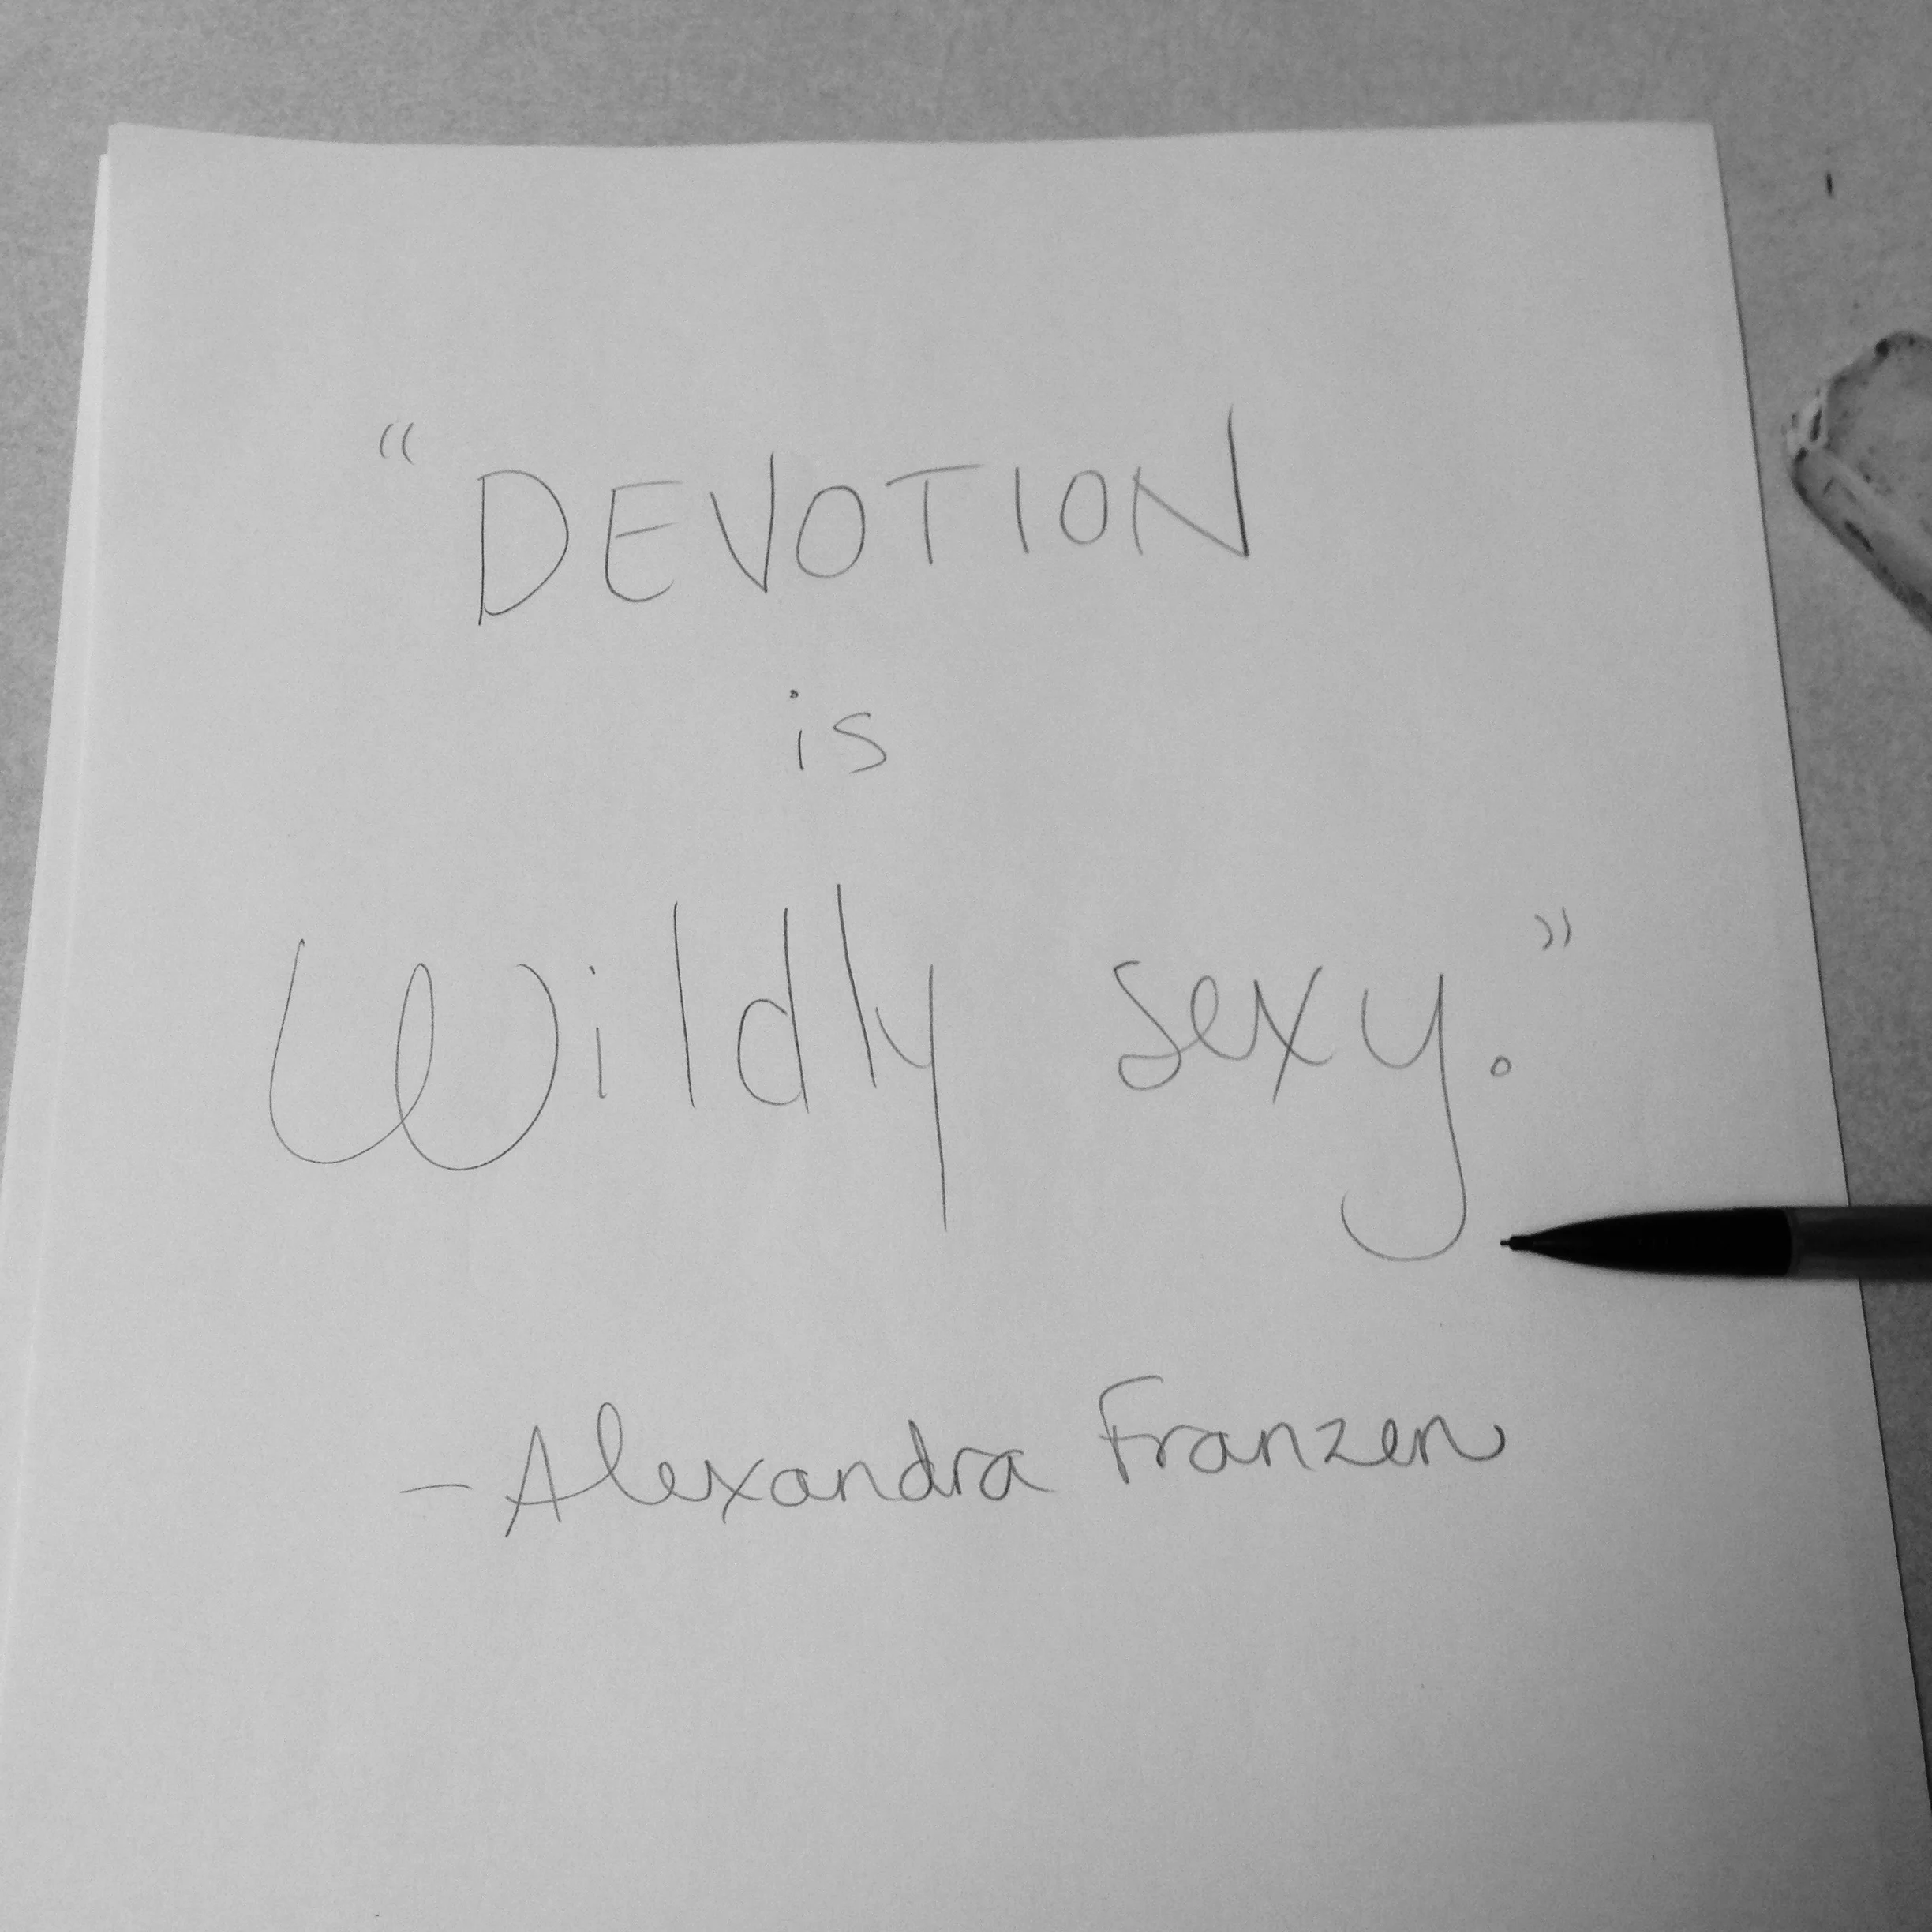 “DEVOTION
is
Wildly sexy.”
-Alexandra Franzen